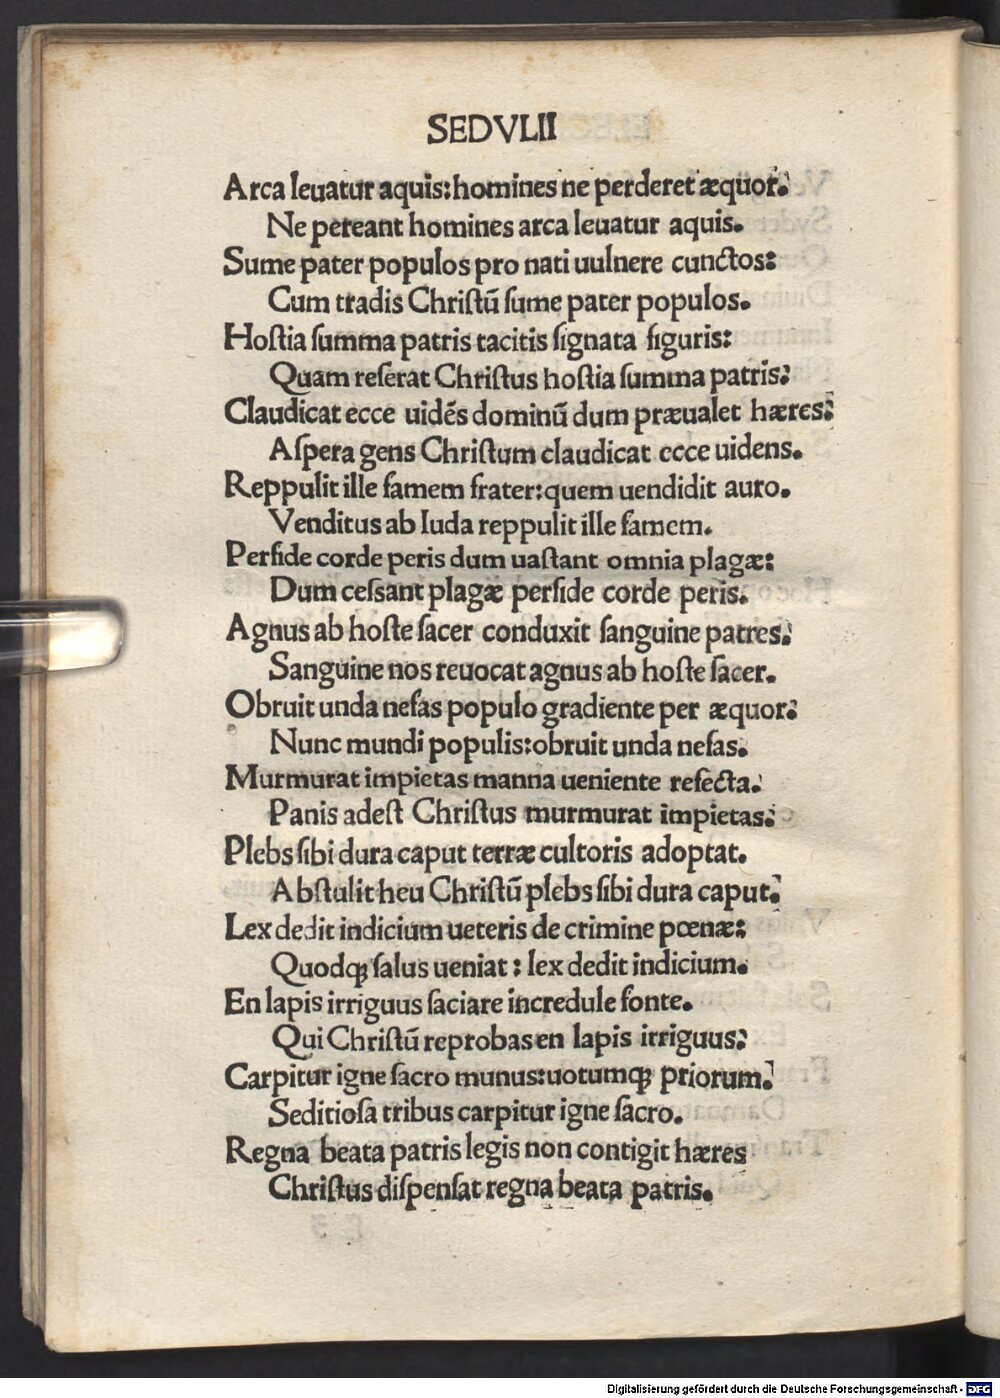 SEDVLII
Arca leuatur aquis:homines ne perderet æquor.
Ne pereant homines arca leuatur aquis.
Sume pater populos pro nati uulnere cunctos:
Cum tradis Chriſtū ſume pater populos.
Hoſtia ſumma patris tacitis ſignata figuris:
Quam reſerat Chriſtus hoſtia ſumma patris:
Claudicat ecce uidēs dominū dum præualet hæres:
Aſpera gens Chriſtum claudicat ecce uidens.
Reppulit ille famem frater:quem uendidit auro.
Venditus ab Iuda reppulit ille famem.
Perfide corde peris dum uaſtant omnia plagæ:
Dum ceſſant plagæ perfide corde peris.
Agnus ab hoſte ſacer conduxit ſanguine patres:
Sanguine nos reuocat agnus ab hoſte ſacer.
Obruit unda nefas populo gradiente per æquor:
Nunc mundi populis:obruit unda nefas.
Murmurat impietas manna ueniente refecta.
Panis adeſt Chriſtus murmurat impietas:
Plebs ſibi dura caput terræ cultoris adoptat.
Abſtulit heu Chriſtū plebs ſibi dura caput.
Lex dedit indicium ueteris de crimine pœnæ:
Quodqꝫ ſalus ueniat : lex dedit indicium.
En lapis irriguus ſaciare incredule fonte.
Qui Chriſtū reprobas en lapis irriguus:
Carpitur igne ſacro munus:uotumqꝫ priorum.
Seditioſa tribus carpitur igne ſacro.
Regna beata patris legis non contigit hæres
Chriſtus diſpenſat regna beata patris.
Digitalisierung gefördert durch die Deutsche Forschungsgemeinschaft - DFG